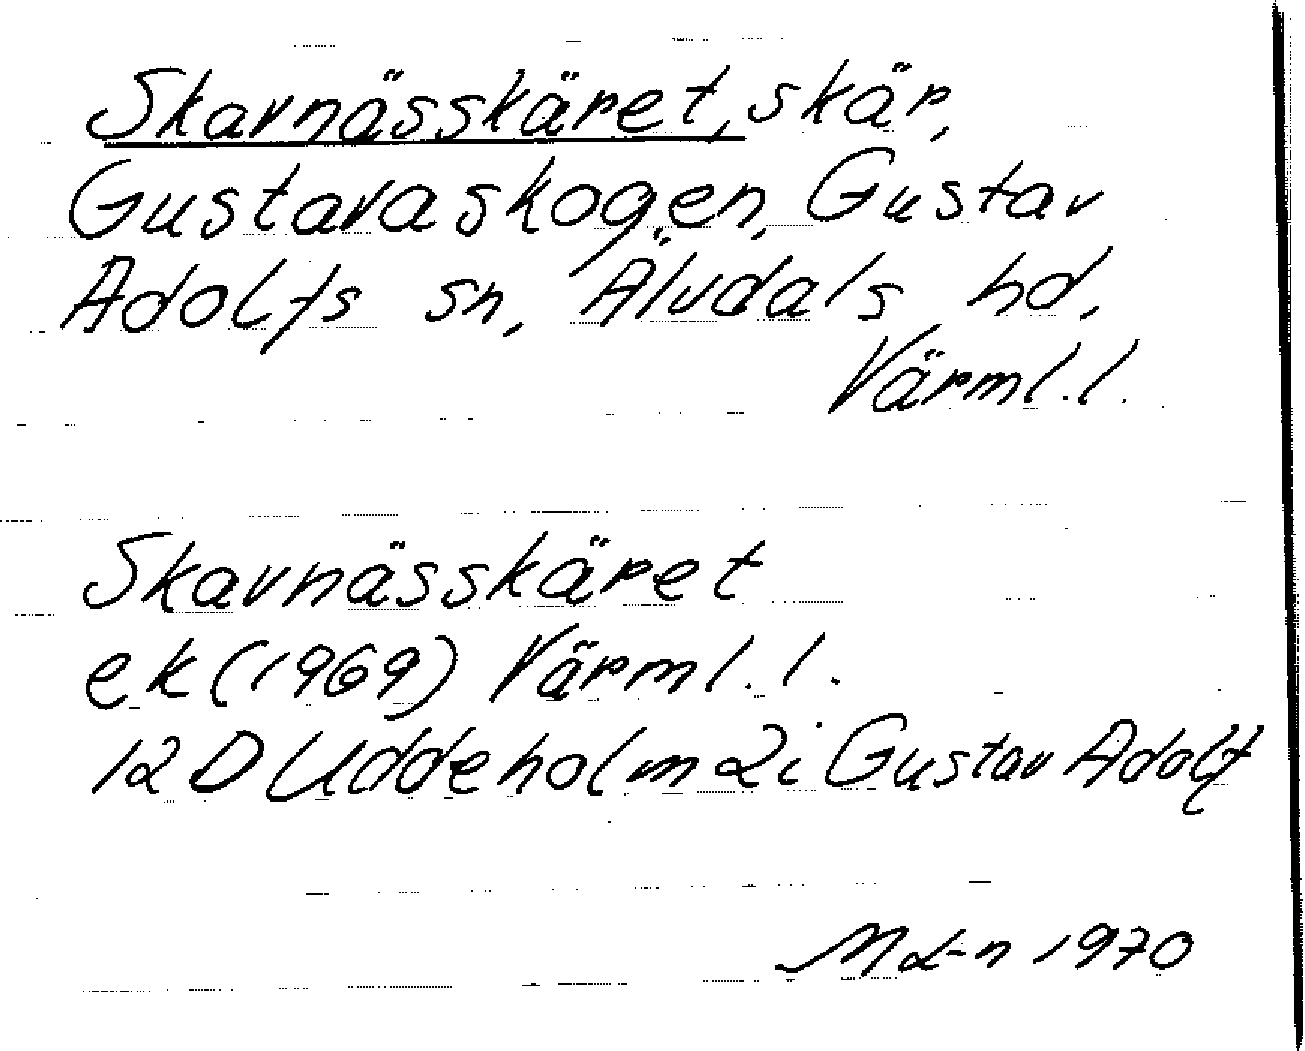 Skavnässkäret, skär,
Gustavaskogen, Gustav
Adolfs sn, Älvdals hd,
Värml. l.
Skavnässkäret
ek (1969) Värml. l.
12 D Uddeholm 2i Gustav Adolf
1970